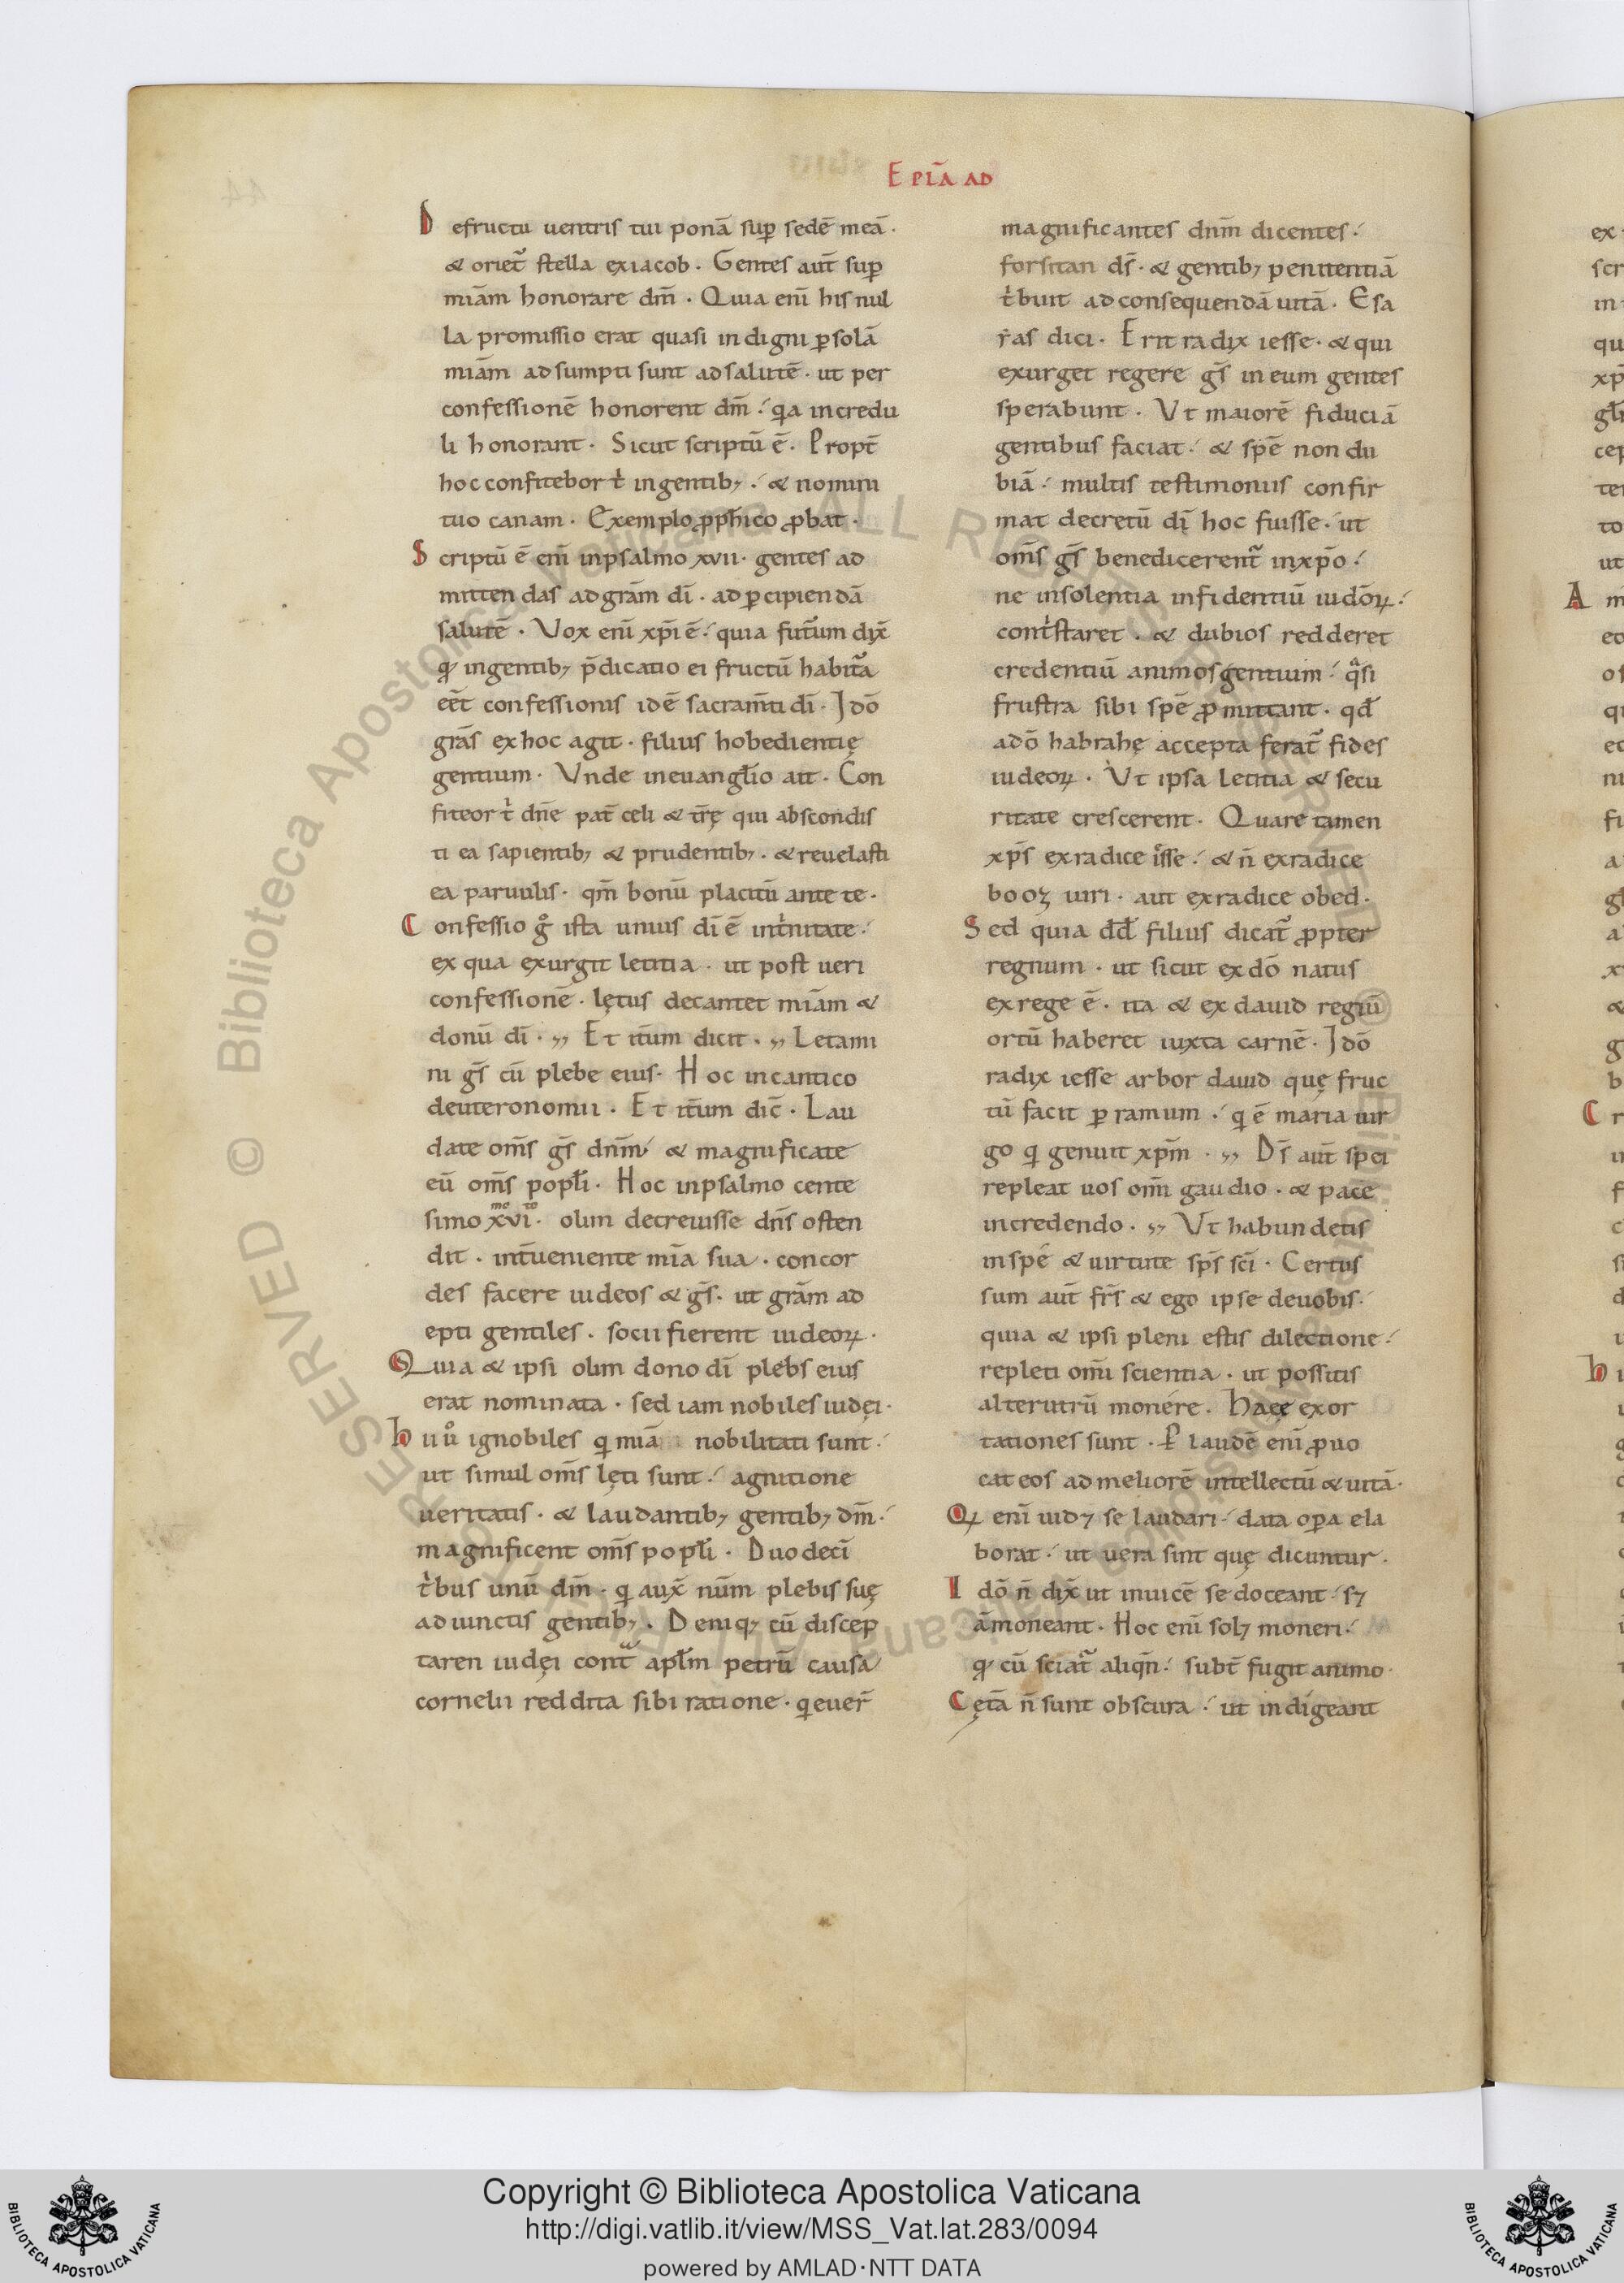 EPIꝈA AD
De fructu uentris tui ponā suꝑ sedē meā.
& oriet᷑ stella exiacob. Gentes aut̄ suꝑ
miām honorare dm̄. Quia enī his nul
la promissio erat quasi indigni ꝑ solā
miām adsumpti sunt adsalutē. ut per
confessionē honorent dm̄. qa incredu
li honorant. Sicut scriptū ē. Propt̄
hoc confitebor tⁱ ingentibꝫ. & nomini
tuo canam. Exemplo ꝓph̄ico ꝓbat.
Scriptū ē enī inpsalmo xvii. gentes ad
mittendas adgrām dī. adpcipiendā
salutē. Vox enī xp̄i ē. quia fut᷑um dix̄
qđ ingentibꝫ p̄dicatio ei fructū habit᷑a
eēt confessionis idē sacram̄ti dī. Idō
grās exhoc agit. filius hobedientię
gentium. Vnde ineuangł̄io ait. Con
fiteor tⁱ dn̄e pat̄ celi & tr̄ę qui abscondis
ti ea sapientibꝫ & prudentibꝫ. & reuelasti
ea paruulis. qm̄ bonū placitū ante te.
Confessio gº ista unius dī ē intⁱnitate.
ex qua exurgit letitia. ut post ueri
confessionē. lętus decantet miām &
donū dī. Et it̄um dicit. Letami
ni gs̄ cū plebe eius. Hoc incantico
deuteronomii. Et it̄um dic̄. Lau
date oms̄ gs̄ dnm̄ & magnificate
eū oms̄ popł̄i. Hoc inpsalmo cente
simo xviͫͦ ͭͦ. olim decreuisse dns̄ osten
dit. int̄ueniente mīa sua. concor
des facere iudeos & gs̄. ut grām ad
epti gentiles. socii fierent iudeoꝝ.
Quia & ipsi olim dono dī plebs eius
erat nominata. sed iam nobiles iudęi.
hii uº ignobiles q miā nobilitati sunt.
ut simul oms̄ lęti sunt. agnitione
ueritatis. & laudantibꝫ gentibꝫ dm̄.
magnificent oms̄ popł̄i. Duodecī
tⁱbus unū dm̄. q aux̄ num̄ plebis suę
adiunctis gentibꝫ. Deniqꝫ cū discep
taren iudęi contᷓ apł̄m petrū causa
cornelii reddita sibi ratione. q euer̄
magnificantes dnm̄ dicentes.
forsitan ds̄. & gentibꝫ penitentiā
tⁱbuit adconsequendā uitā. Esa
ẏas dici. Erit radix iesse. & qui
exurget regere gs̄ in eum gentes
sperabunt. Vt maiorē fiduciā
gentibus faciat. & spē non du
biā. multis testimoniis confir
mat decretū dī hoc fuisse. ut
oms̄ gs̄ benedicerent᷑ inxp̄o.
ne insolentia infidentiū iudōꝝ.
contⁱstaret. & dubios redderet
credentiū animos gentium. qᵃsi
frustra sibi spē ꝓmittant. qđ
adō habrahę accepta ferat᷑ fides
iudeoꝝ. Vt ipsa letitia & secu
ritate crescerent. Quare tamen
xps̄ exradice iͤsse. & n̄ exradice
booz uiri. aut exradice obed.
Sed quia dđ filius dicat᷑ ꝓpter
regnum. ut sicut ex dō natus
ex rege ē. ita & ex dauid regiū
ortū haberet iuxta carnē. Idō
radix iesse arbor dauid quę fruc
tū facit ꝑ ramum. q ē maria uir
go q genuit xpm̄. Ds̄ aut̄ spei
repleat uos om̄i gaudio. & pace
incredendo. Vt habundetis
inspe & uirtute sps̄ scī. Certus
sum aut̄ frs̄ & ego ipse deuobis.
quia & ipsi pleni estis dilectione.
repleti om̄i scientia. ut possitis
alterutrū monére. Haec exor
tationes sunt. P laudē enī ꝓuo
cat eos ad meliorē intellectū & uitā.
Q enī uidꝫ se laudari. data oꝑa ela
borat. ut uera sint quę dicuntur.
Idō n̄ dix̄ ut inuicē se doceant. sꝫ
āmoneant. Hoc enī solꝫ moneri.
qđ cū sciat᷑ aliqn̄. subt̄ fugit animo.
Cętā n̄ sunt obscura. ut indigeant
Copyright © Biblioteca Apostolica Vaticana
http://digi.vatlib.it/view/MSS_Vat.lat.283/0094
powered by AMLAD·NTT DATA